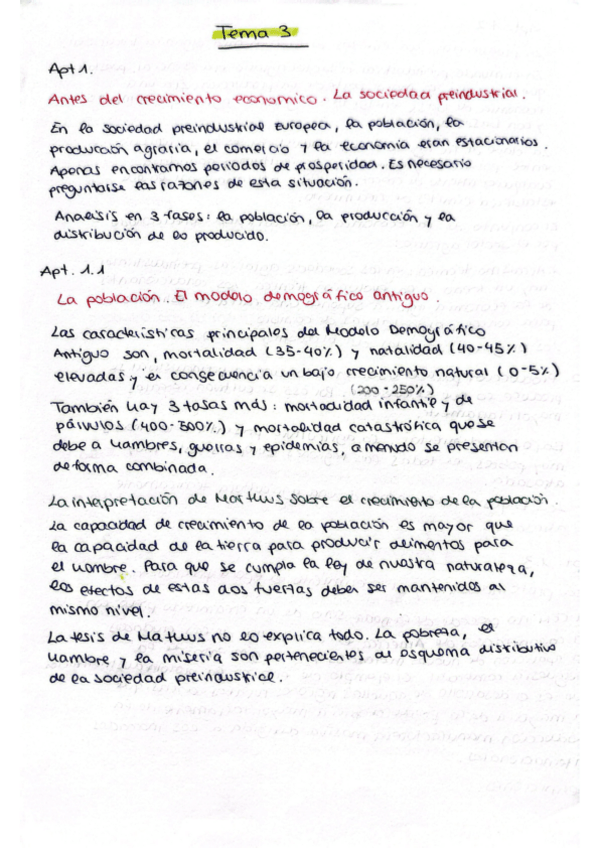 Tema 3
Apt 1.
Antes del crecimiento economico. La sociedad preindustrial.
En la sociedad preindustrial Europea, la población, la
producción agraria, el comercio y la economía eran estacionarios.
Apenas encontramos periodos de prosperidad. Es necesario
preguntarse las razones de esta situación.
Analisis en 3 fases: la población, la producción y la
distribución de lo producido.
Apt. 1.1
La población. El modelo demográfico antiguo.
Las características principales del Modelo Demográfico
Antiguo son, mortalidad (35-40%) y natalidad (40-45%)
elevadas y en consecuencia un bajo crecimiento natural (0-5%)
(200-250%)
También hay 3 tasas más: mortalidad infantil y de
párvulos (400-500%) y mortalidad catastrófica que se
debe a hambres, guerras y epidemias, a menudo se presentan
de forma combinada.
La interpretación de Malthus sobre el crecimiento de la población.
La capacidad de crecimiento de la población es mayor que
la capacidad de la tierra para producir alimentos para
el hombre. Para que se cumpla la ley de nuestra naturaleza,
los efectos de estas dos fuerzas deben ser mantenidos al
mismo nivel.
La tesis de Malthus no lo explica todo. La pobreza, el
hambre y la miseria son pertenecientes al esquema distributivo
de la sociedad preindustrial.